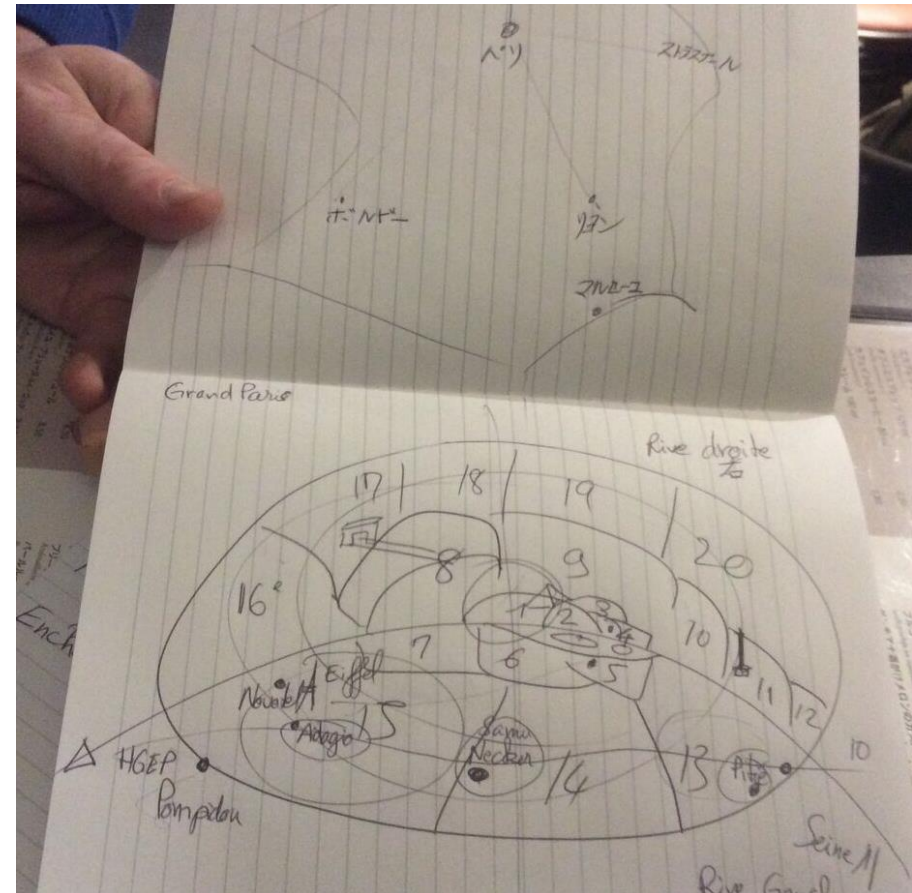 パリ
ストラスブール
ボールドー
リヨン
マルセーユ
Grand Paris
Rive droite
右
17
18
19
20
16e
8
9
10
11
12
7
6
1
2
3
4
5
Eiffel
Novotel
15
Adagio
Samu
Necker
14
13
Pitié
10
HGEP
Pompidou
Seine
Rive Gauche